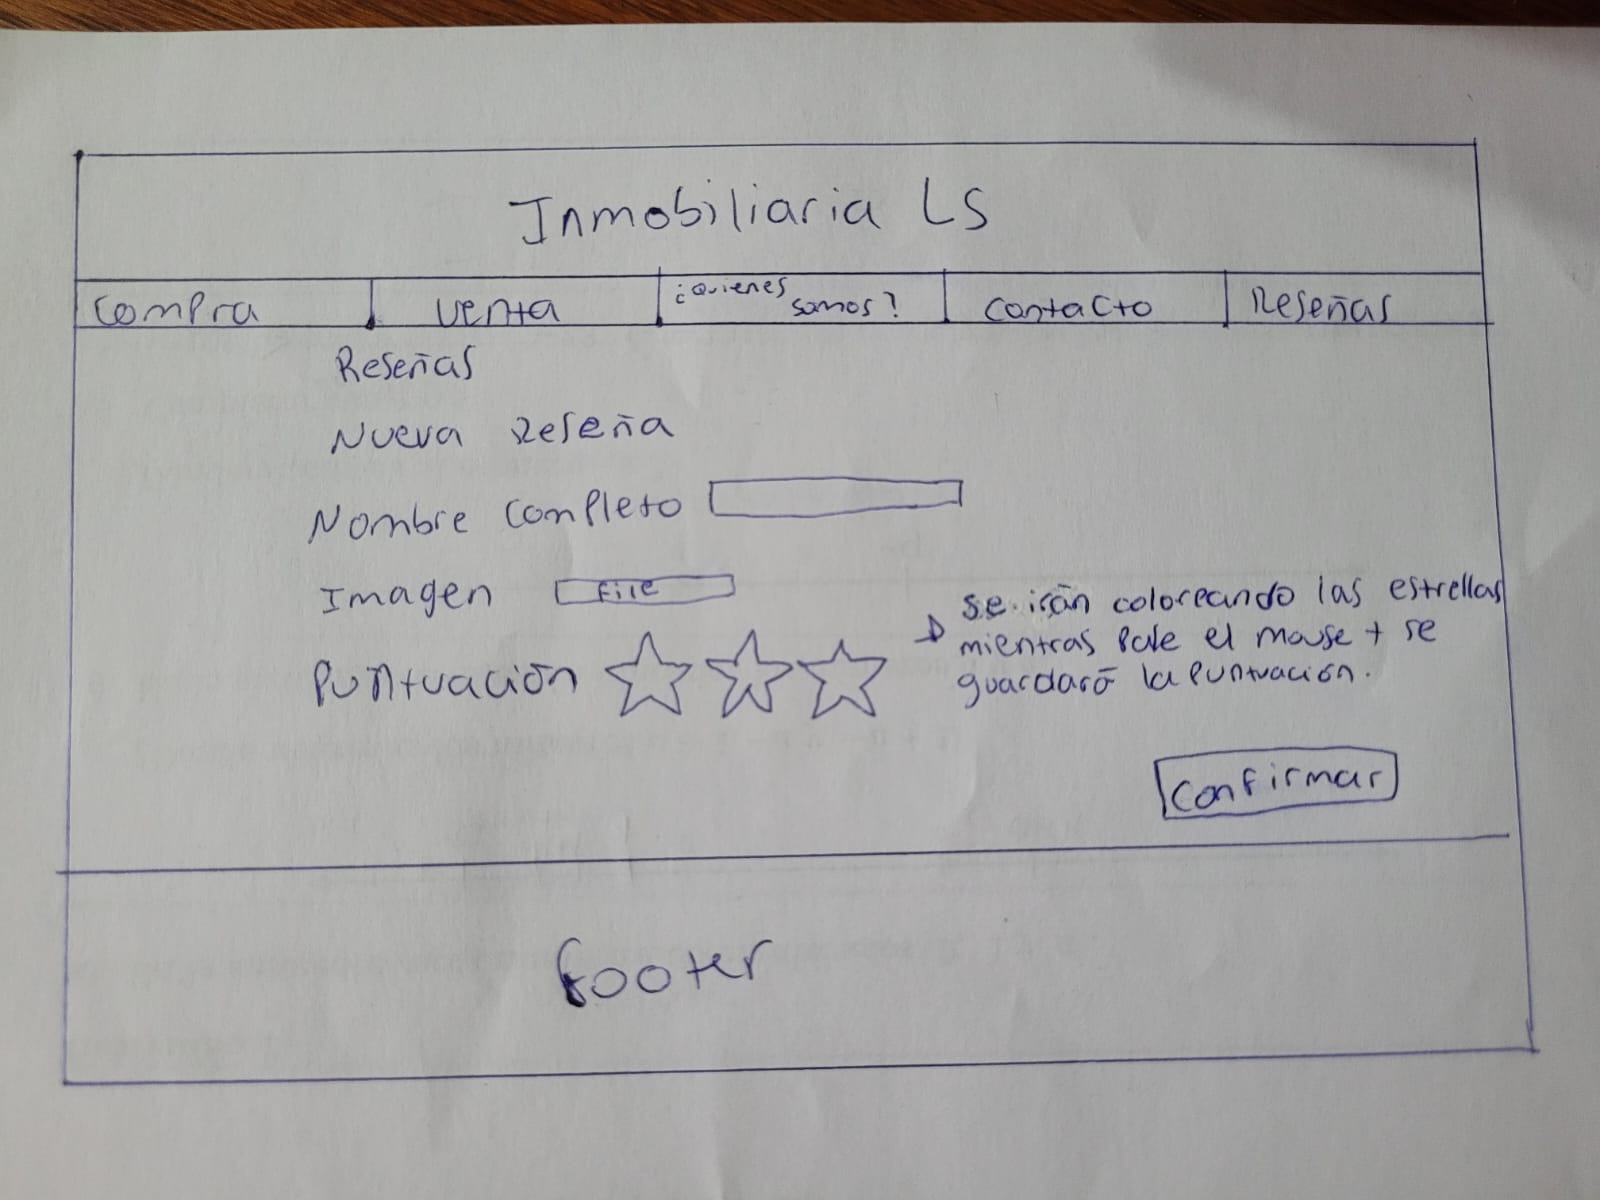 Inmobiliaria LS
Compra
Venta
¿Quienes
somos?
Contacto
Reseñas
Reseñas
Nueva Reseña
Nombre Completo
Imagen
File
Puntuación
se irán coloreando las estrellas
mientras pase el mouse + se
guardará la puntuación.
Confirmar
footer